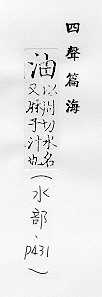 四聲篇海
油
以周切水名
又麻子汁也
(水部、P431)